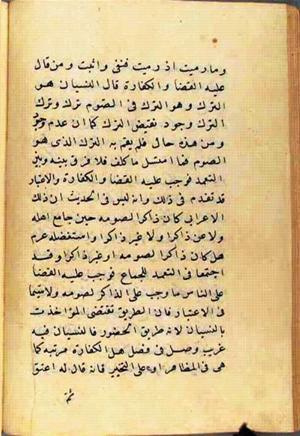 وما رميت اذ رميت فنفى واثبت ومن قال
عليه القضا والكفارة قال النسيان هو
الترك وهو الترك فى الصوم ترك وترك
الترك وجود نقيض الترك كما ان عدم العدم وجود
ومن هذه حاله فلم يقم به الترك الذى هو
الصوم فما امتثل ما كلف فلا فرق بينه وبين
المتعمد فوجب عليه القضا والكفارة والاعتبار
قد تقدم فى ذلك وانه ليس فى الحديث ان ذلك
الاعرابى كان ذاكرا لصومه حين جامع اهله
ولا غير ذاكر ولا استفصله عم
هل كان ذاكرا لصومه او غير ذاكر وقد
اجتمعا فى التعمد للجماع فوجب عليه القضا
على الناسى ما وجب على الذاكر لصومه ولا سيما
فى الاعتبار فان الطريق تقتضى المواخذة
بالنسيان لانه طريق الحضور فالنسيان فيه
غريب وصل فى فصل هل الكفارة مرتبة كما
هى فى المظاهر او على التخيير فانه قال له اعتق
ثم